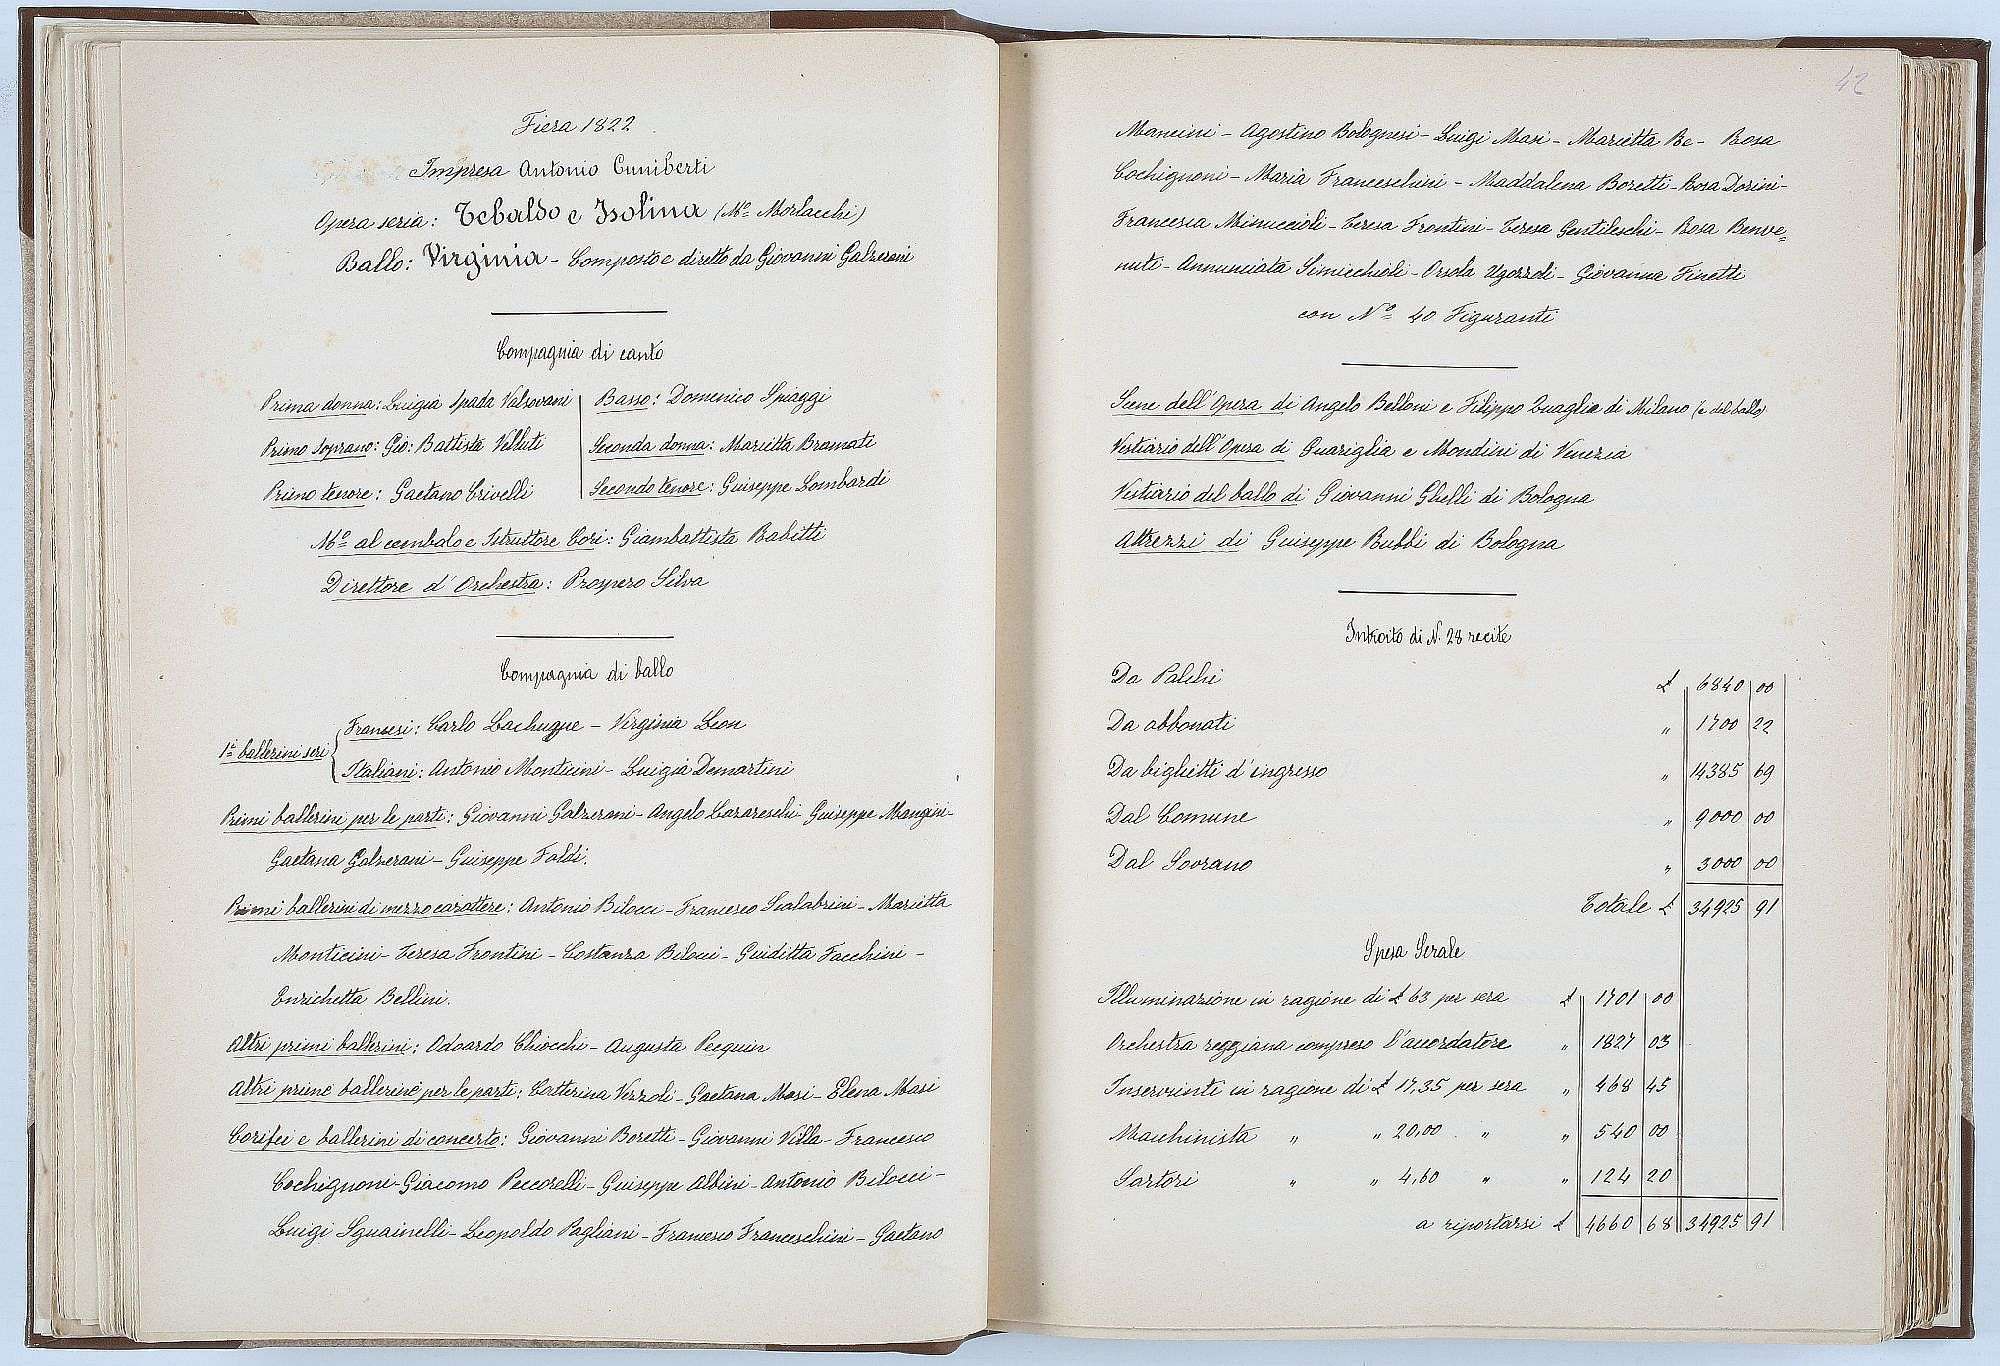 Fiera 1822
Impresa Antonio Cuniberti
Opera seria: Tebaldo e Isolina (Mo Morlacchi)
Ballo: Virginia - Composto e diretto da Giovanni Galzerani
Compagnia di canto
Prima donna: Luigia Spada Valsovani
Primo soprano: Gio: Battista Velluti
Primo tenore: Gaetano Crivelli
Basso: Domenico Spiaggi
Seconda donna: Marietta Bramati
Secondo tenore: Guiseppe Lombardi
Mo al cembalo e Istruttore Cori: Giambattista Rabitti
Direttore d'Orchestra: Prospero Silva
Compagnia di ballo
1i ballerini seri
Francesi: Carlo Lachuque - Virginia Leon
Italiani: Antonio Monticini - Luigia Demartini
Primi ballerini per le parti: Giovanni Galzerani - Angelo Lazareschi - Guiseppe Mangini -
Gaetana Galzerani - Guiseppe Foldi.
Primi ballerini di mezzo carattere: Antonio Bilocci - Francesco Scalabrini - Marietta
Monticini - Teresa Frontini - Costanza Bilocci - Guiditta Facchini -
Enrichetta Bellini.
Altri primi ballerini: Odoardo Chiocchi - Augusta Pecquin
Altri primi ballerini per le parti: Catterina Vezzoli - Gaetana Masi - Elena Masi
Corifei e ballerini di concerto: Giovanni Boretti - Giovanni Villa - Francesco
Cochignoni - Giacomo Peccorelli - Guiseppe Albini - Antonio Bilocci -
Luigi Sguainelli - Leopoldo Pagliani - Francesco Franceschini - Gaetano
42
Mancini - Agostino Bolognesi - Luigi Masi - Marietta Re - Rosa
Cochignoni - Maria Franceschini - Maddalena Boretti - Rosa Dorini -
Francesca Minuccioli - Teresa Frontini - Teresa Gentileschi - Rosa Benve=
nuti - Annunciata Simicchioli - Orsola Ugozzoli - Giovanna Finetti
con No 40 Figuranti
Scene dell'Opera di Angelo Belloni e Filippo Zuaglia di Milano (e del ballo)
Vestiario dell'Opera di Guariglia e Mondini di Venezia
Vestiario del ballo di Giovanni Ghelli di Bologna
Attrezzi di Guiseppe Rubbi di Bologna
Introito di N. 28 recite
Da Palchi £ 6840 00
Da abbonati " 1700 22
Da biglietti d'ingresso " 14385 69
Dal Comune " 9000 00
Dal Sovrano " 3000 00
Totale £ 34925 91
Spesa Serale
Illuminazione in ragione di £ 63 per sera £ 1701 00
Orchestra reggiana compreso l'accordatore " 1827 03
Inservienti in ragione di £ 17,35 per sera " 468 45
Macchinista " " 20,00 " " 540 00
Sartori " " 4,60 " " 124 20
a riportarsi £ 4660 68 34925 91